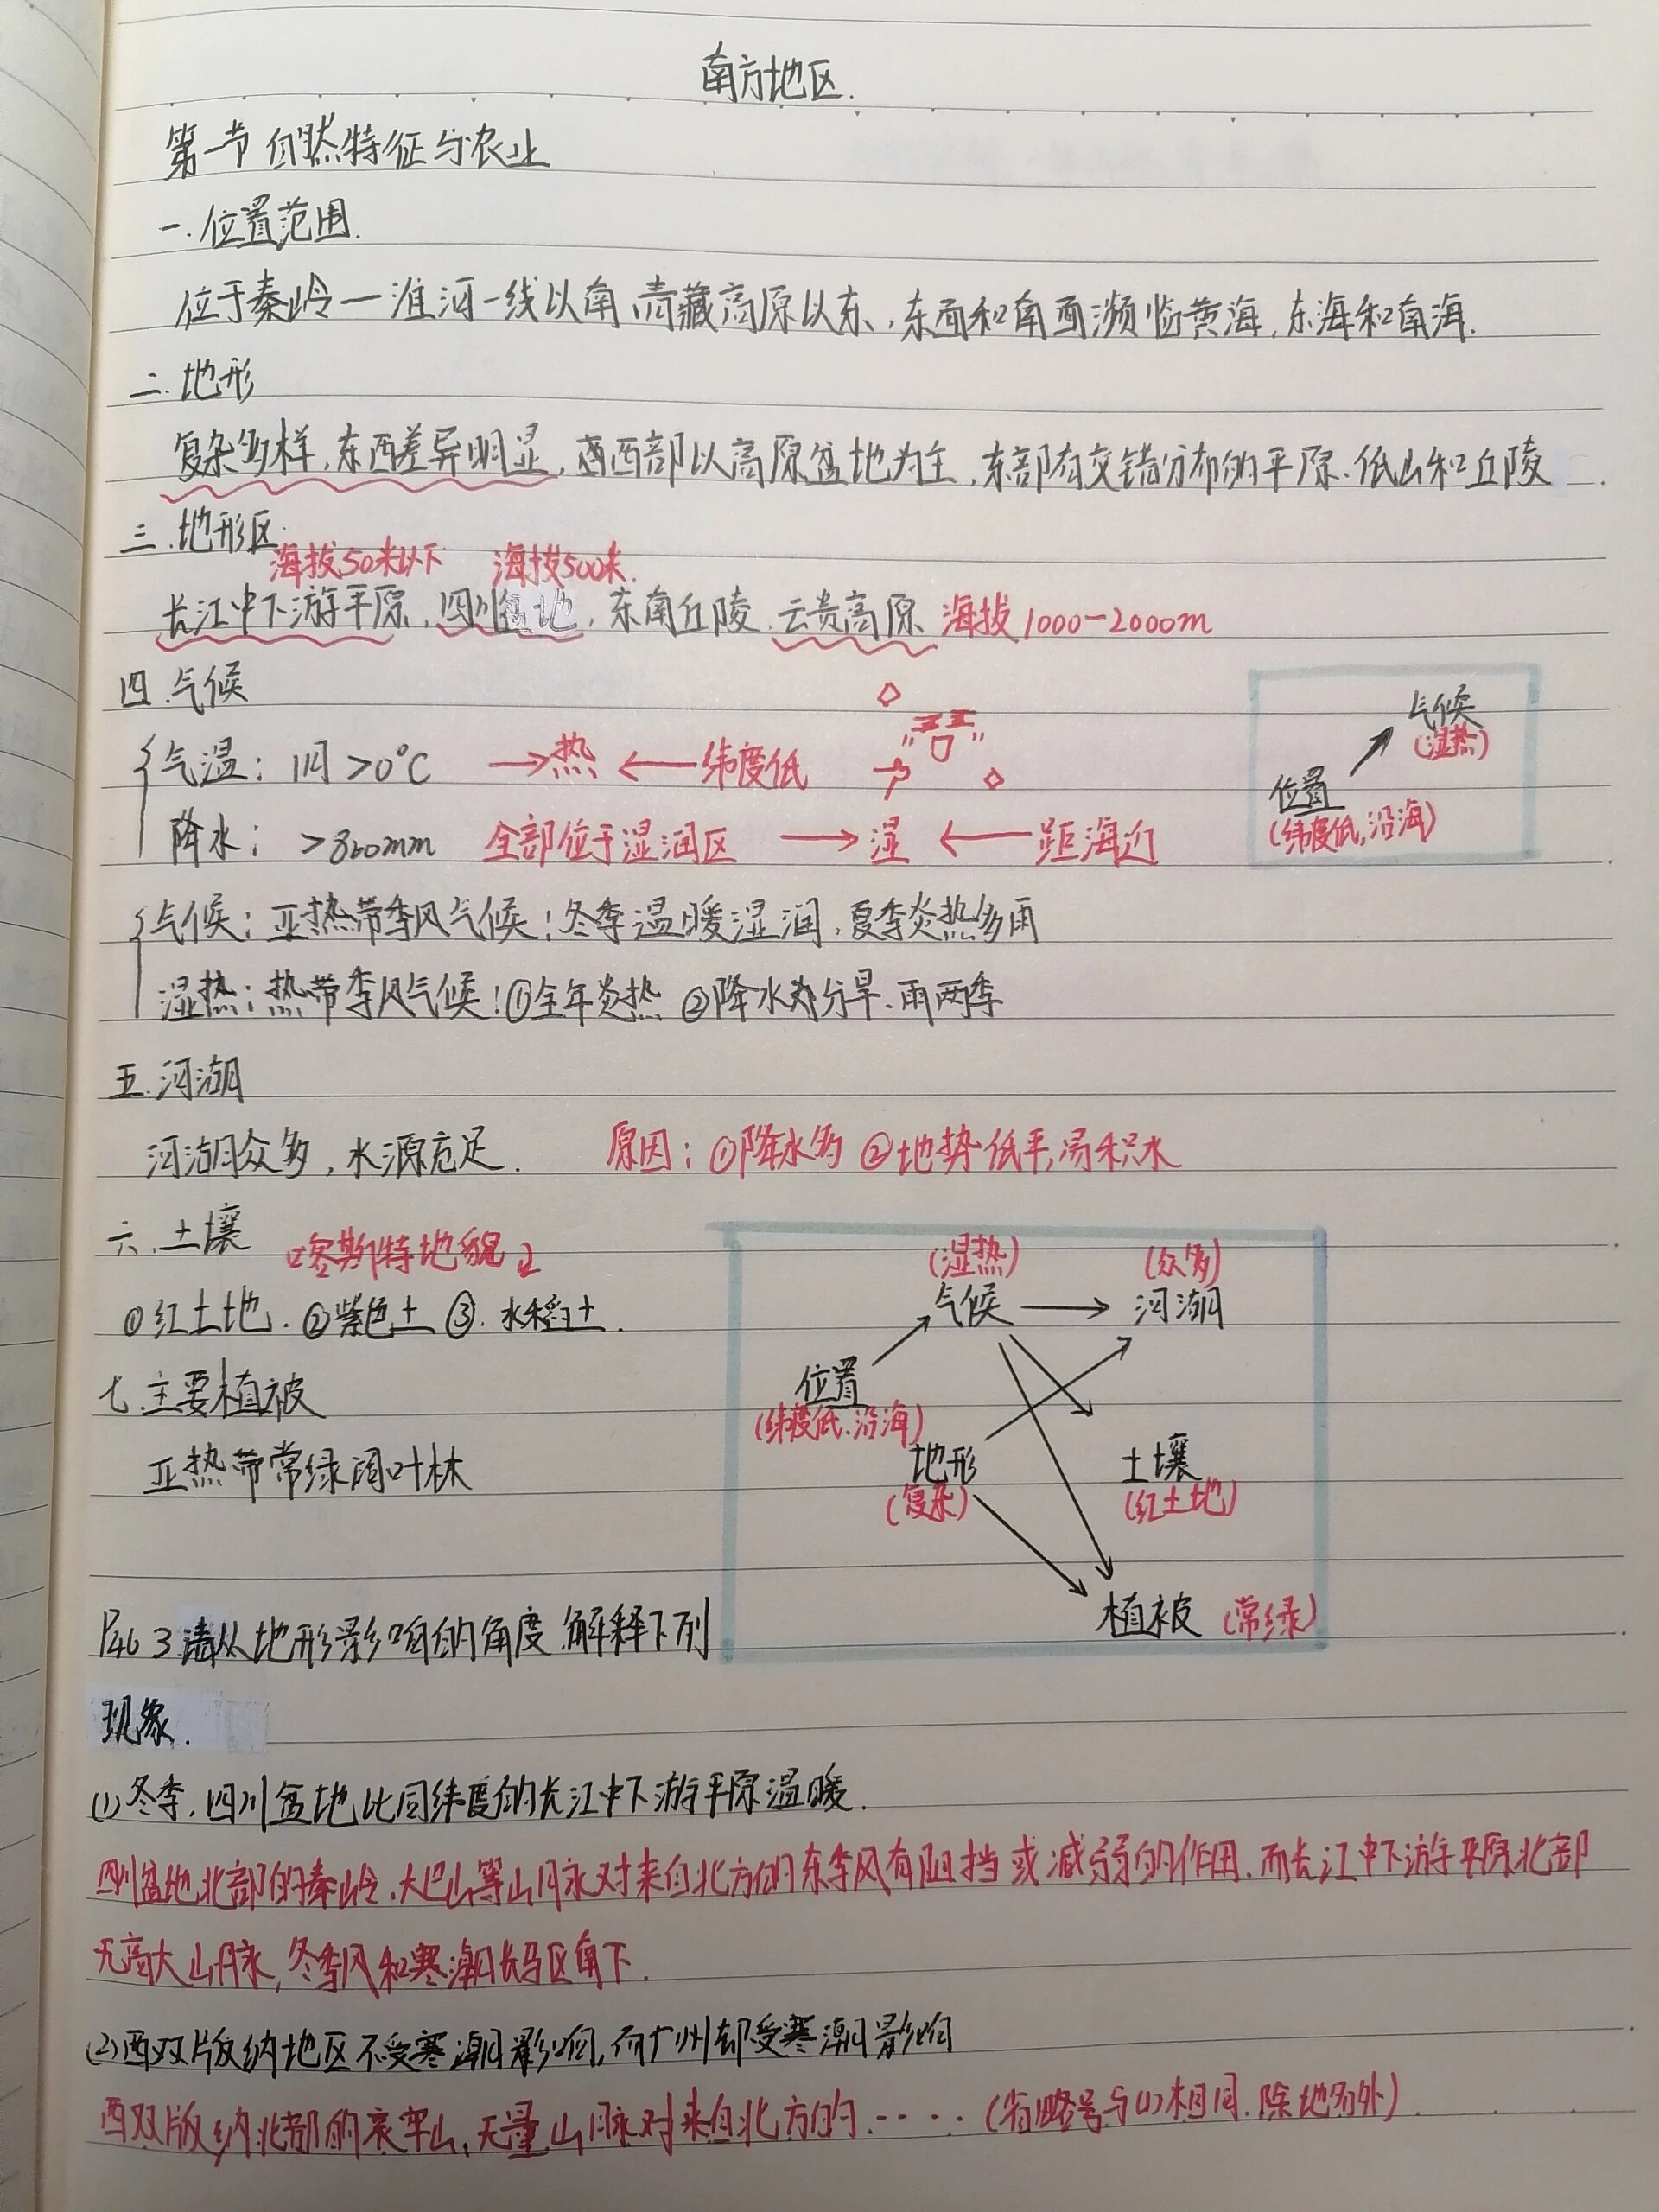 南方地区.
第一节 自然特征与农业
一.位置范围.
位于秦岭一淮河一线以南,青藏高原以东,东面和南面濒临黄海,东海和南海.
二.地形
复杂多样,东西差异明显,西部以高原盆地为主,东部有交错分布的平原、低山和丘陵.
三.地形区
海拔50米以下 海拔500米.
长江中下游平原,四川盆地,东南丘陵,云贵高原 海拔1000-2000m
四.气候
气温:1月>0°C →热←纬度低
降水:>800mm 全部位于湿润区→湿←距海近
气候
(湿热)
位置
(纬度低,沿海)
气候:亚热带季风气候:冬季温暖湿润,夏季炎热多雨
湿热:热带季风气候:①全年炎热 ②降水分旱、雨两季
五.河湖
河湖众多,水源充足. 原因:①降水多 ②地势低平,易积水
六.土壤 喀斯特地貌
①红土地.②紫色土 ③.水稻土.
七.主要植被
亚热带常绿阔叶林
(湿热) (众多)
气候→河湖
位置
(纬度低、沿海)
地形 土壤
(复杂) (红土地)
植被(常绿)
P46 3 请从地形影响的角度,解释下列
现象.
(1)冬季,四川盆地比同纬度的长江中下游平原温暖.
四川盆地北部的秦岭、大巴山等山脉对来自北方的冬季风有阻挡或减弱的作用,而长江中下游平原北部
无高大山脉,冬季风和寒潮长驱南下.
(2)西双版纳地区不受寒潮影响,而广州却受寒潮影响
西双版纳北部的哀牢山、无量山脉对来自北方的.....(省略号与(1)相同,除地名外)